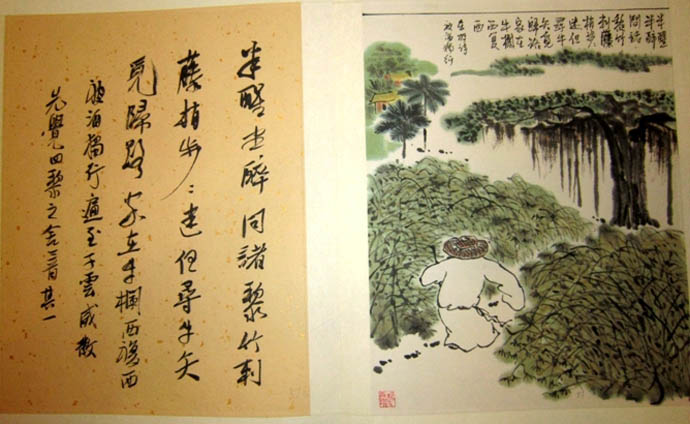 半醒
半醉
問諸
黎竹
刺藤
梢步〻
迷但
尋牛
矢覓
歸路
家在
牛欄
西復
西
東坡詩
被酒獨行
半醒半醉問諸黎竹刺
藤梢步〻迷但尋牛矢
覓歸路家在牛欄西復西
被酒獨行遍至子雲威徽
先覺四黎之舍三首其一